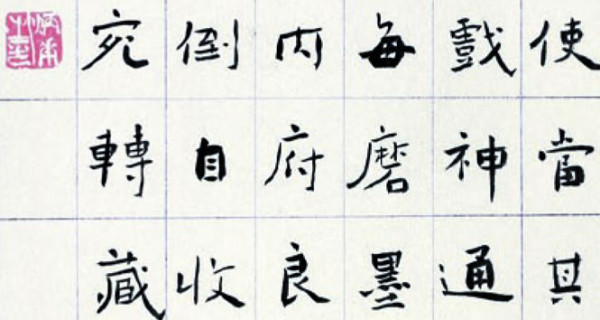 使當其
戲神通
每磨墨
内府良
倒自收
宛轉藏